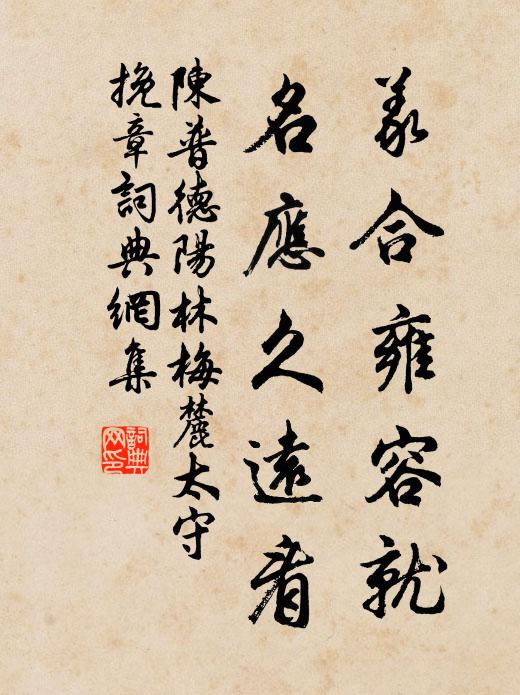 義合雍容就
名應久遠看
陳普德陽林梅麓太守
挽章詞典網集
詞典網印